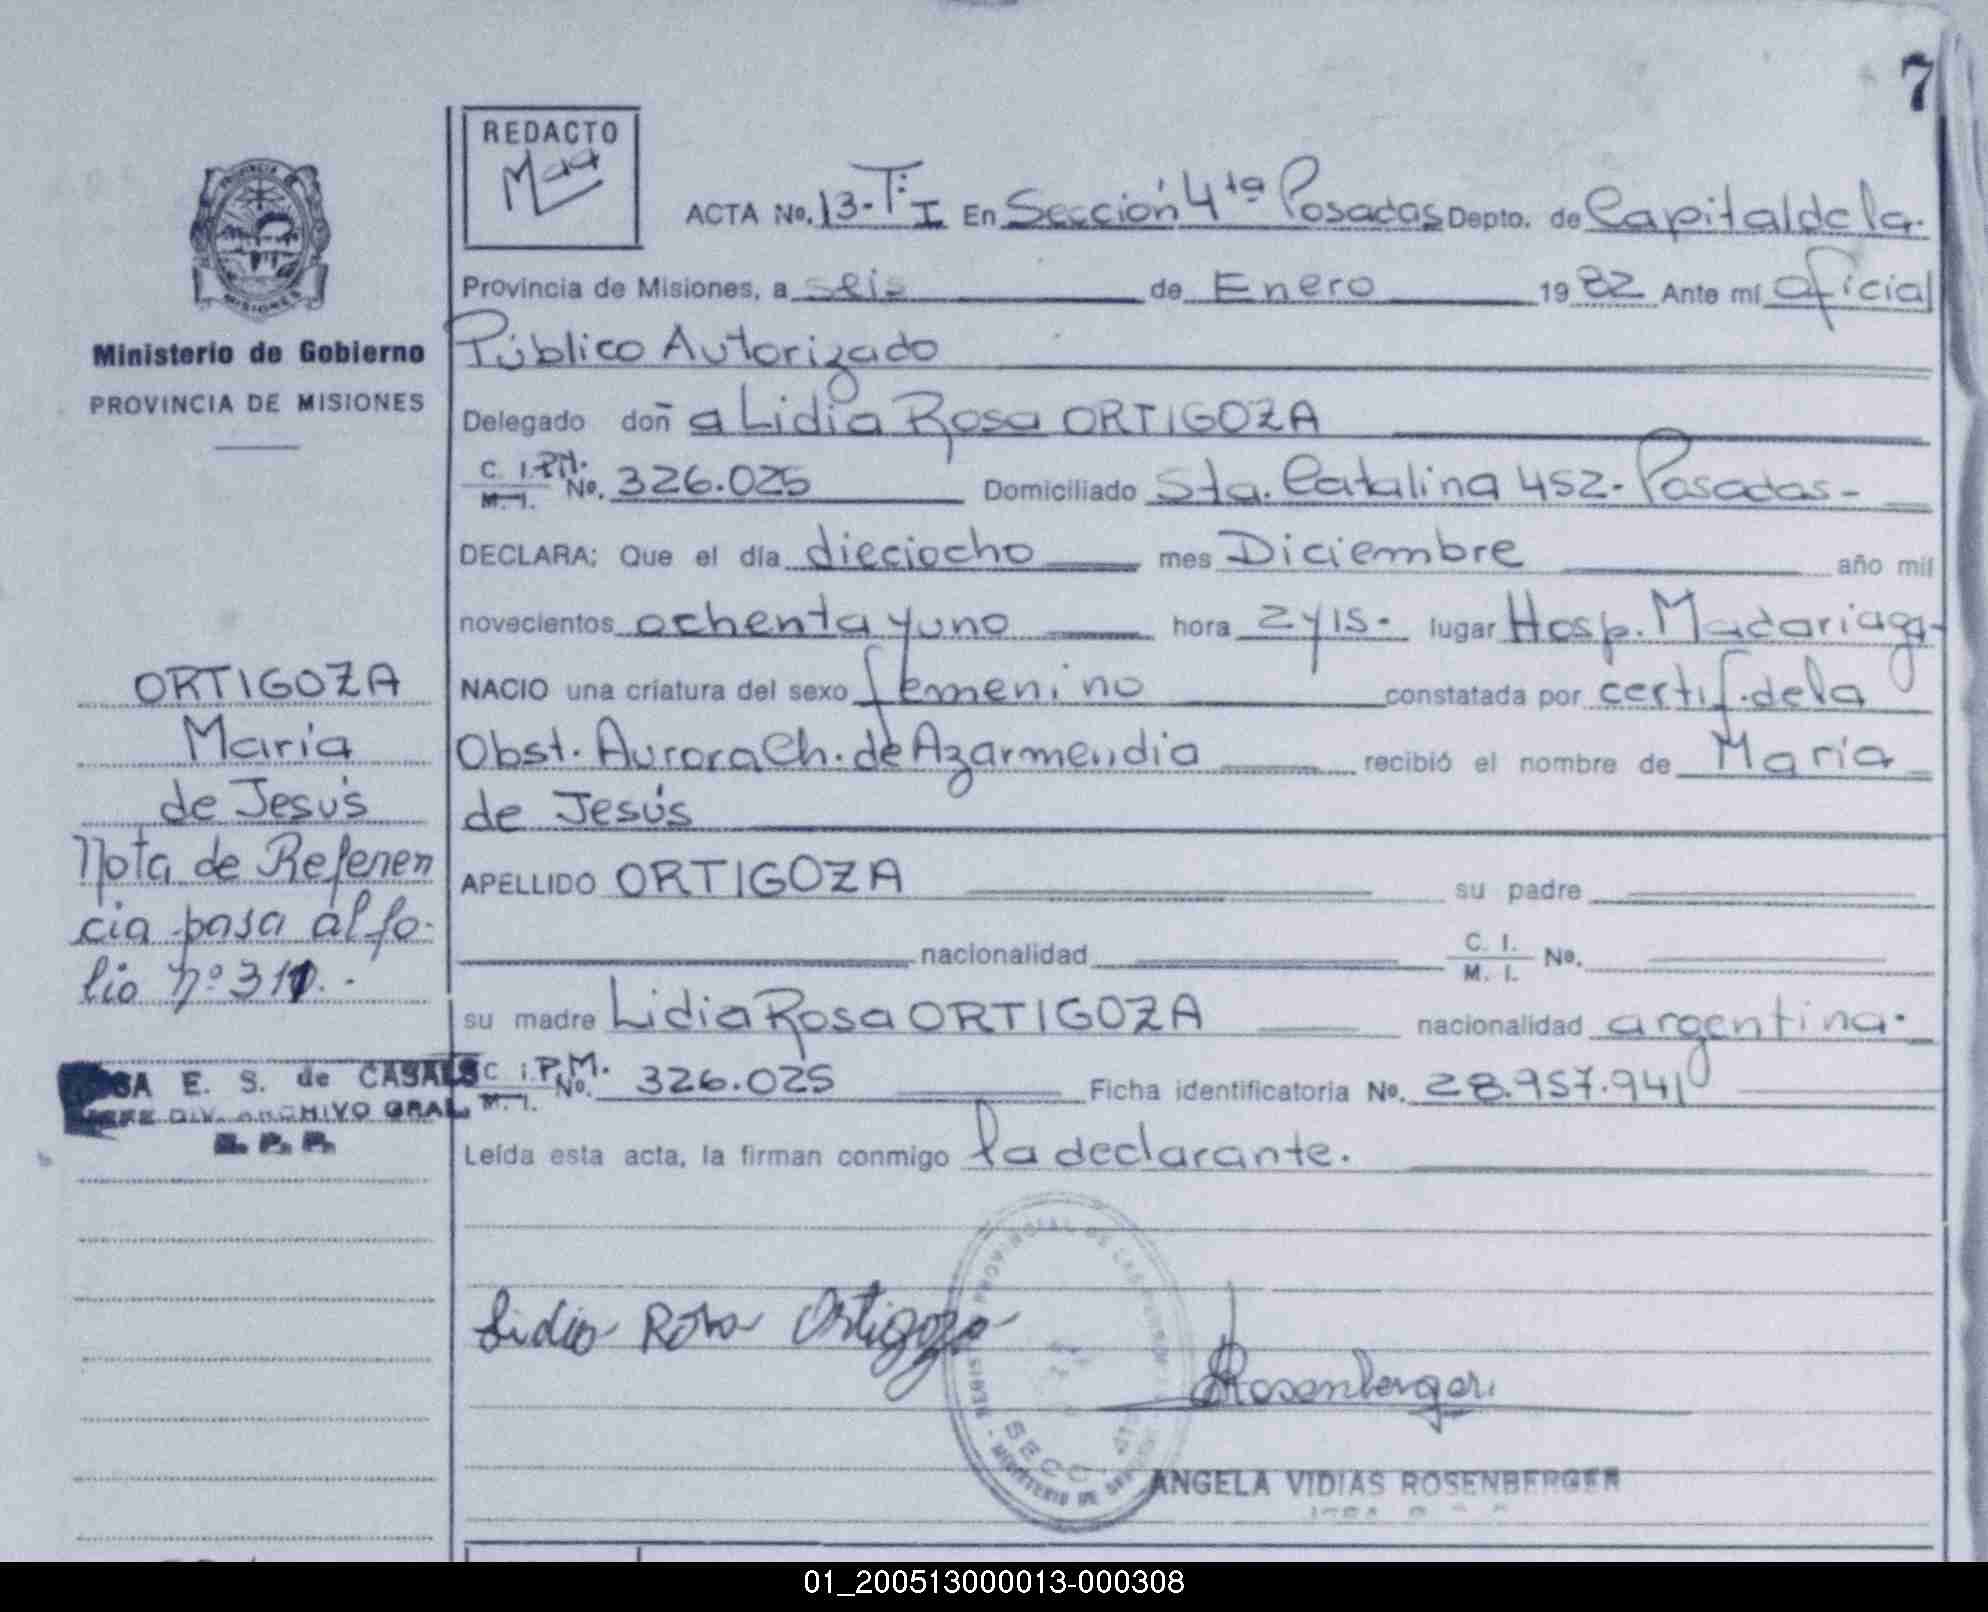 7
REDACTO
ACTA No. 13-Tº I En Sección 4ta Posadas Depto. de Capital de la
Provincia de Misiones, a seis de Enero 1982 Ante mí oficial
Público Autorizado
Delegado doña Lidia Rosa ORTIGOZA
C. I. P.M. M. I. No. 326.025 Domiciliado Sta. Catalina 452- Posadas-
DECLARA: Que el día dieciocho mes Diciembre año mil
novecientos ochenta y uno hora 2 y 15. lugar Hosp. Madariaga-
NACIO una criatura del sexo femenino constatada por certif. de la
Obst. Aurora Ch. de Azarmendia recibió el nombre de María
de Jesús
APELLIDO ORTIGOZA su padre
nacionalidad C. I. M. I. No.
su madre Lidia Rosa ORTIGOZA nacionalidad argentina.
C. I. P.M. M. I. No. 326.025 Ficha identificatoria No. 28.957.941
Leída esta acta, la firman conmigo la declarante.
Lidia Rosa Ortigoza
Rosenberger
ANGELA VIDIAS ROSENBERGER
PROVINCIA DE
MISIONES
Ministerio de Gobierno
PROVINCIA DE MISIONES
ORTIGOZA
María
de Jesús
Nota de Referen
cia pasa al fo-
lio nº 311.-
E. S. de CASALS
JEFE DIV. ARCHIVO GRAL.
R. P. P.
SECC
MINISTERIO DE
01_200513000013-000308